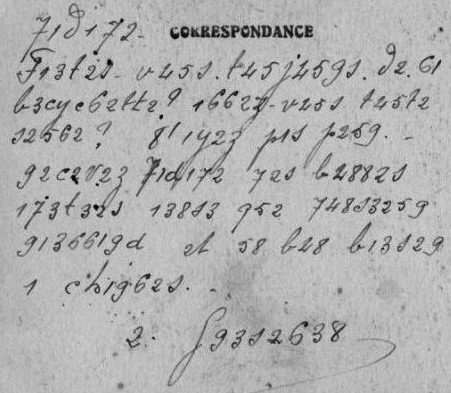 71d172- CORRESPONDANCE
F13t2s- v45s. t45j459s. d2. 61
b3cyc62tt2? 1662z-v45s t45t2
s2562? 8'1y2z p1s p259.-
92c2v2z 71d172 72s b4882s
173t32s 138s3 952 748s3259
9136619d et 58 b48 b13s29
1 ch1962s.
2. G93s2638